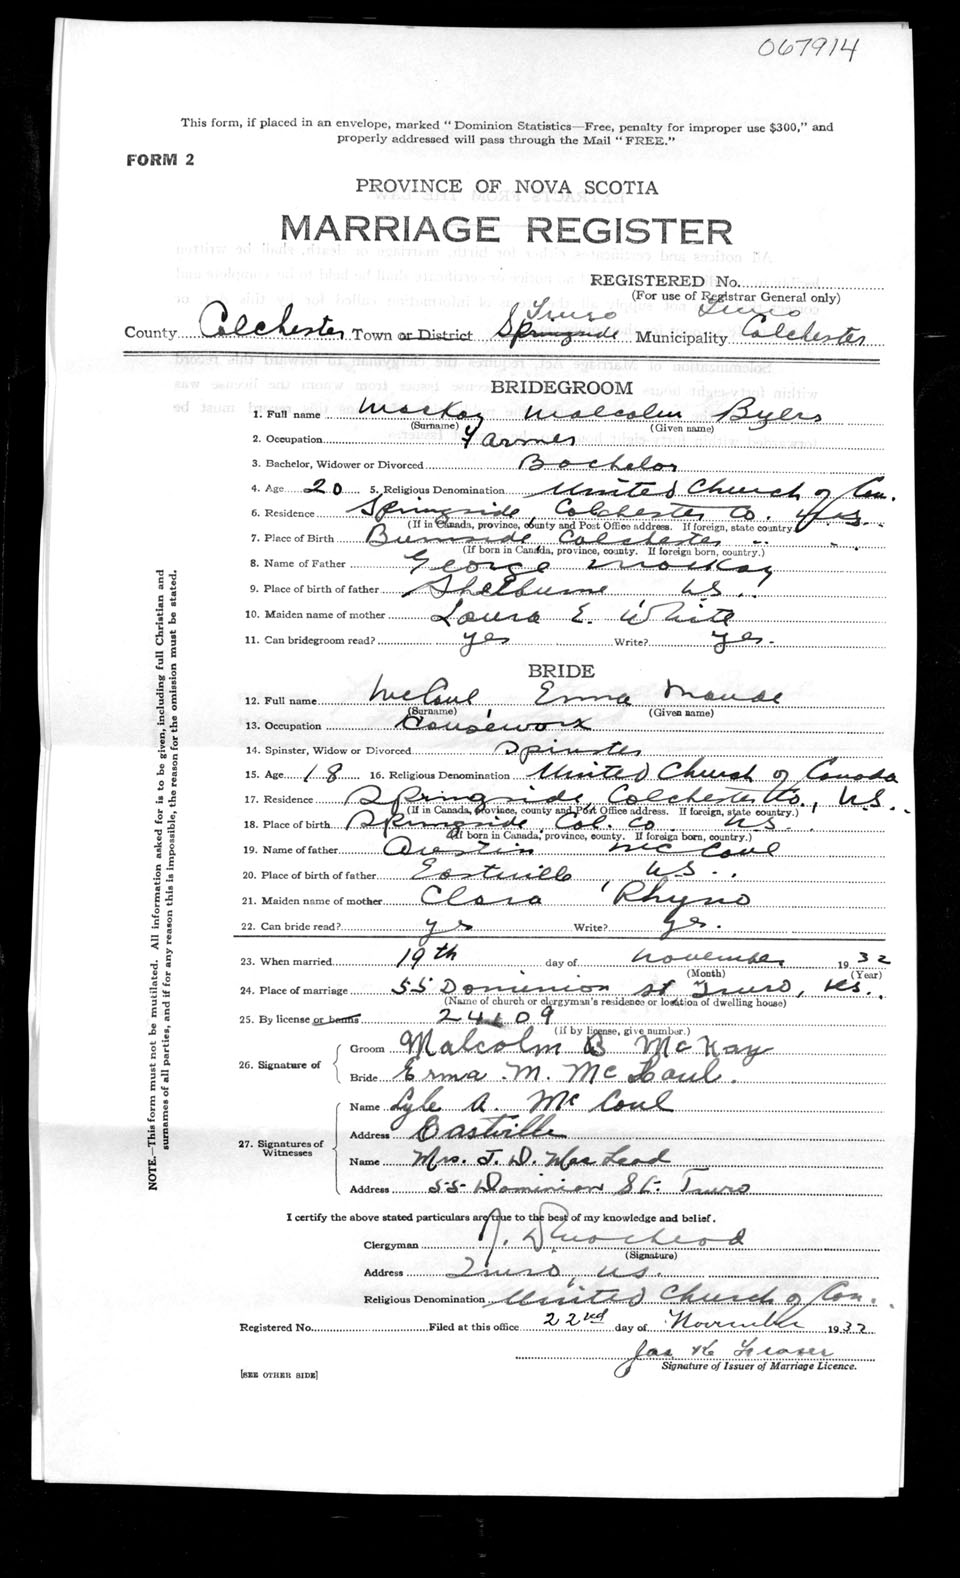 067914
This form, if placed in an envelope, marked "Dominion Statistics—Free, penalty for improper use $300," and
properly addressed will pass through the Mail "FREE."
FORM 2
PROVINCE OF NOVA SCOTIA
MARRIAGE REGISTER
REGISTERED No.
(For use of Registrar General only)
Truro Truro
County Colchester Town or District Springside Municipality Colchester
BRIDEGROOM
1. Full name MacKay Malcolm Byers
(Surname) (Given name)
2. Occupation Farmer
3. Bachelor, Widower or Divorced Bachelor
4. Age 20 5. Religious Denomination United Church of Can.
6. Residence Springside, Colchester Co. N.S.
(If in Canada, province, county and Post Office address. If foreign, state country.)
7. Place of Birth Burnside Colchester " "
(If born in Canada, province, county. If foreign born, country.)
8. Name of Father George MacKay
9. Place of birth of father Shelburne N.S.
10. Maiden name of mother Laura E. White
11. Can bridegroom read? yes Write? yes.
BRIDE
12. Full name McCoul, Erma Maude
(Surname) (Given name)
13. Occupation Housework
14. Spinster, Widow or Divorced Spinster
15. Age 18 16. Religious Denomination United Church of Canada
17. Residence Springside, Colchester Co., N.S.
(If in Canada, province, county and Post Office address. If foreign, state country.)
18. Place of birth Springside, Col. Co N.S.
(If born in Canada, province, county. If foreign born, country.)
19. Name of father Austin McCoul
20. Place of birth of father Eastville, N.S.
21. Maiden name of mother Clara Rhyno
22. Can bride read? yes Write? yes.
23. When married 19th day of November 1932
(Month) (Year)
24. Place of marriage 55 Dominion St Truro, N.S.
(Name of church or clergyman's residence or location of dwelling house)
25. By license or banns 24609
(if by license, give number.)
26. Signature of
Groom Malcolm B McKay
Bride Erma M. McCoul.
27. Signatures of Witnesses
Name Lyle A. McCoul
Address Eastville
Name Mrs. J. D. MacLeod
Address 55 Dominion St. Truro
I certify the above stated particulars are true to the best of my knowledge and belief.
Clergyman J. D. MacLeod
(Signature)
Address Truro, N.S.
Religious Denomination United Church of Can.
Registered No. Filed at this office 22nd day of November 1932
Jas K Fraser
Signature of Issuer of Marriage Licence.
[SEE OTHER SIDE]
NOTE.—This form must not be mutilated. All information asked for is to be given, including full Christian and
surnames of all parties, and if for any reason this is impossible, the reason for the omission must be stated.